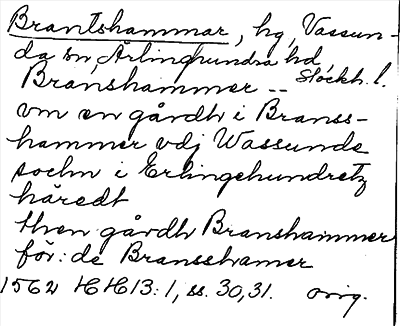 Brantshammar, hg, Vassun-
da sn, Ärlinghundra hd
Stockh. l.
Branshammer --
vm en gårdh i Branss-
hammer vdj Wassunde
sochn i Erlingehundretz
häredt
then gårdh Branshammer
för: de Bransshamer
1562 HH 13:1, ss. 30, 31. orig.